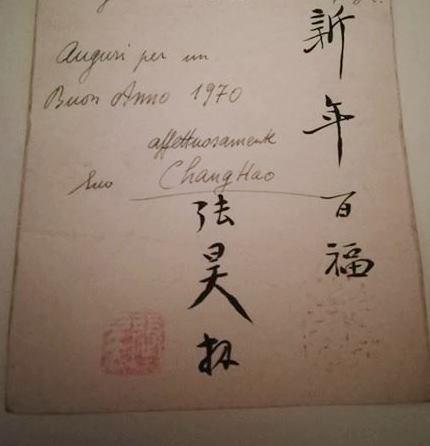 Auguri per un
Buon Anno 1970
affettuosamente
Suo Chang Hao
张昊
新年百福